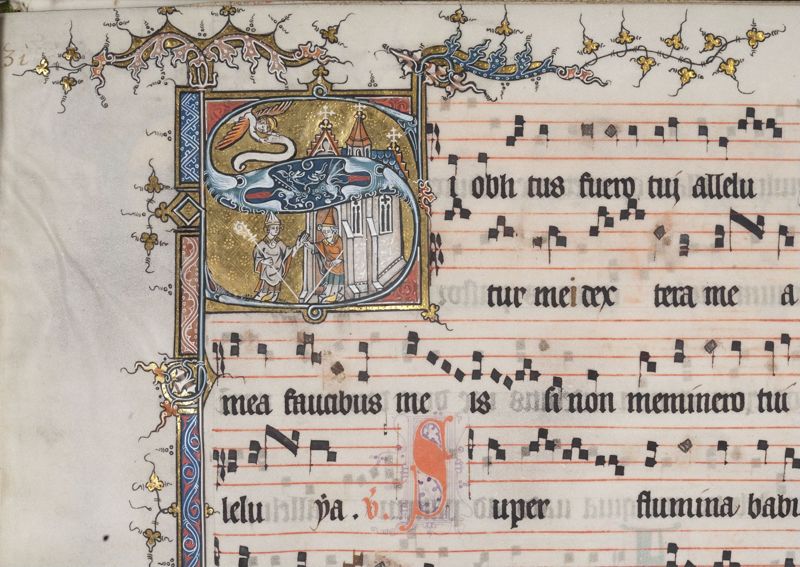 S i obli tus fuero tui allelu
tur mei dex tera me a
mea faucibus me is si non meminero tui
lelu ya. v. Super flumina babi